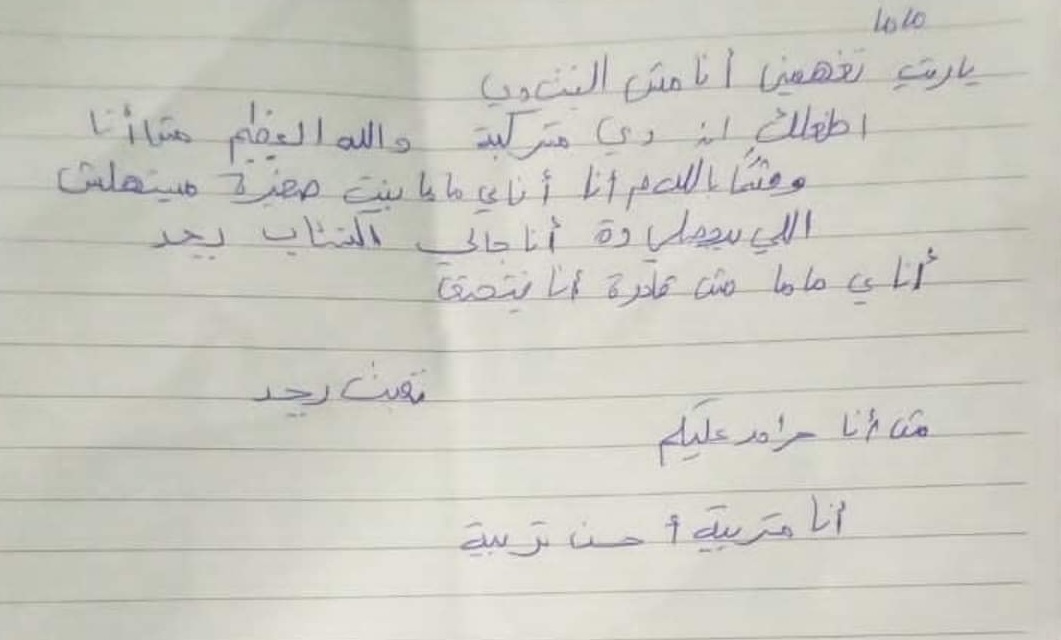 ماما
ياريت تفهمني أنا مش البنت دي
اطهلك ان دي متركبة والله العظيم مش أنا
وقسًا بالله م أنا أنا ي ماما بنت صغيرة مستهلش
اللي بيحصلي دة أنا جالي اكتئاب بجد
أنا ي ماما مش قادرة أنا بتخنق
تعبت بجد
مش أنا حرام عليكم
أنا متربية أحسن تربية